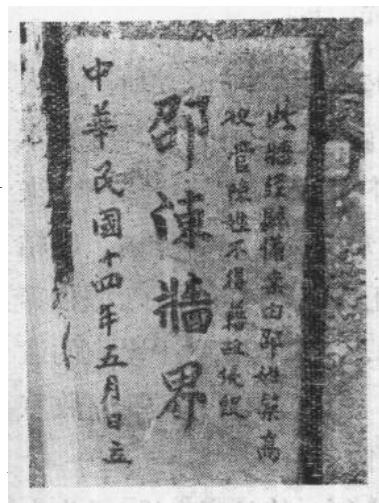 此牆經縣備案由邵姓築高
收管陳姓不得藉故侵毀
邵陳牆界
中華民國十四年五月日立